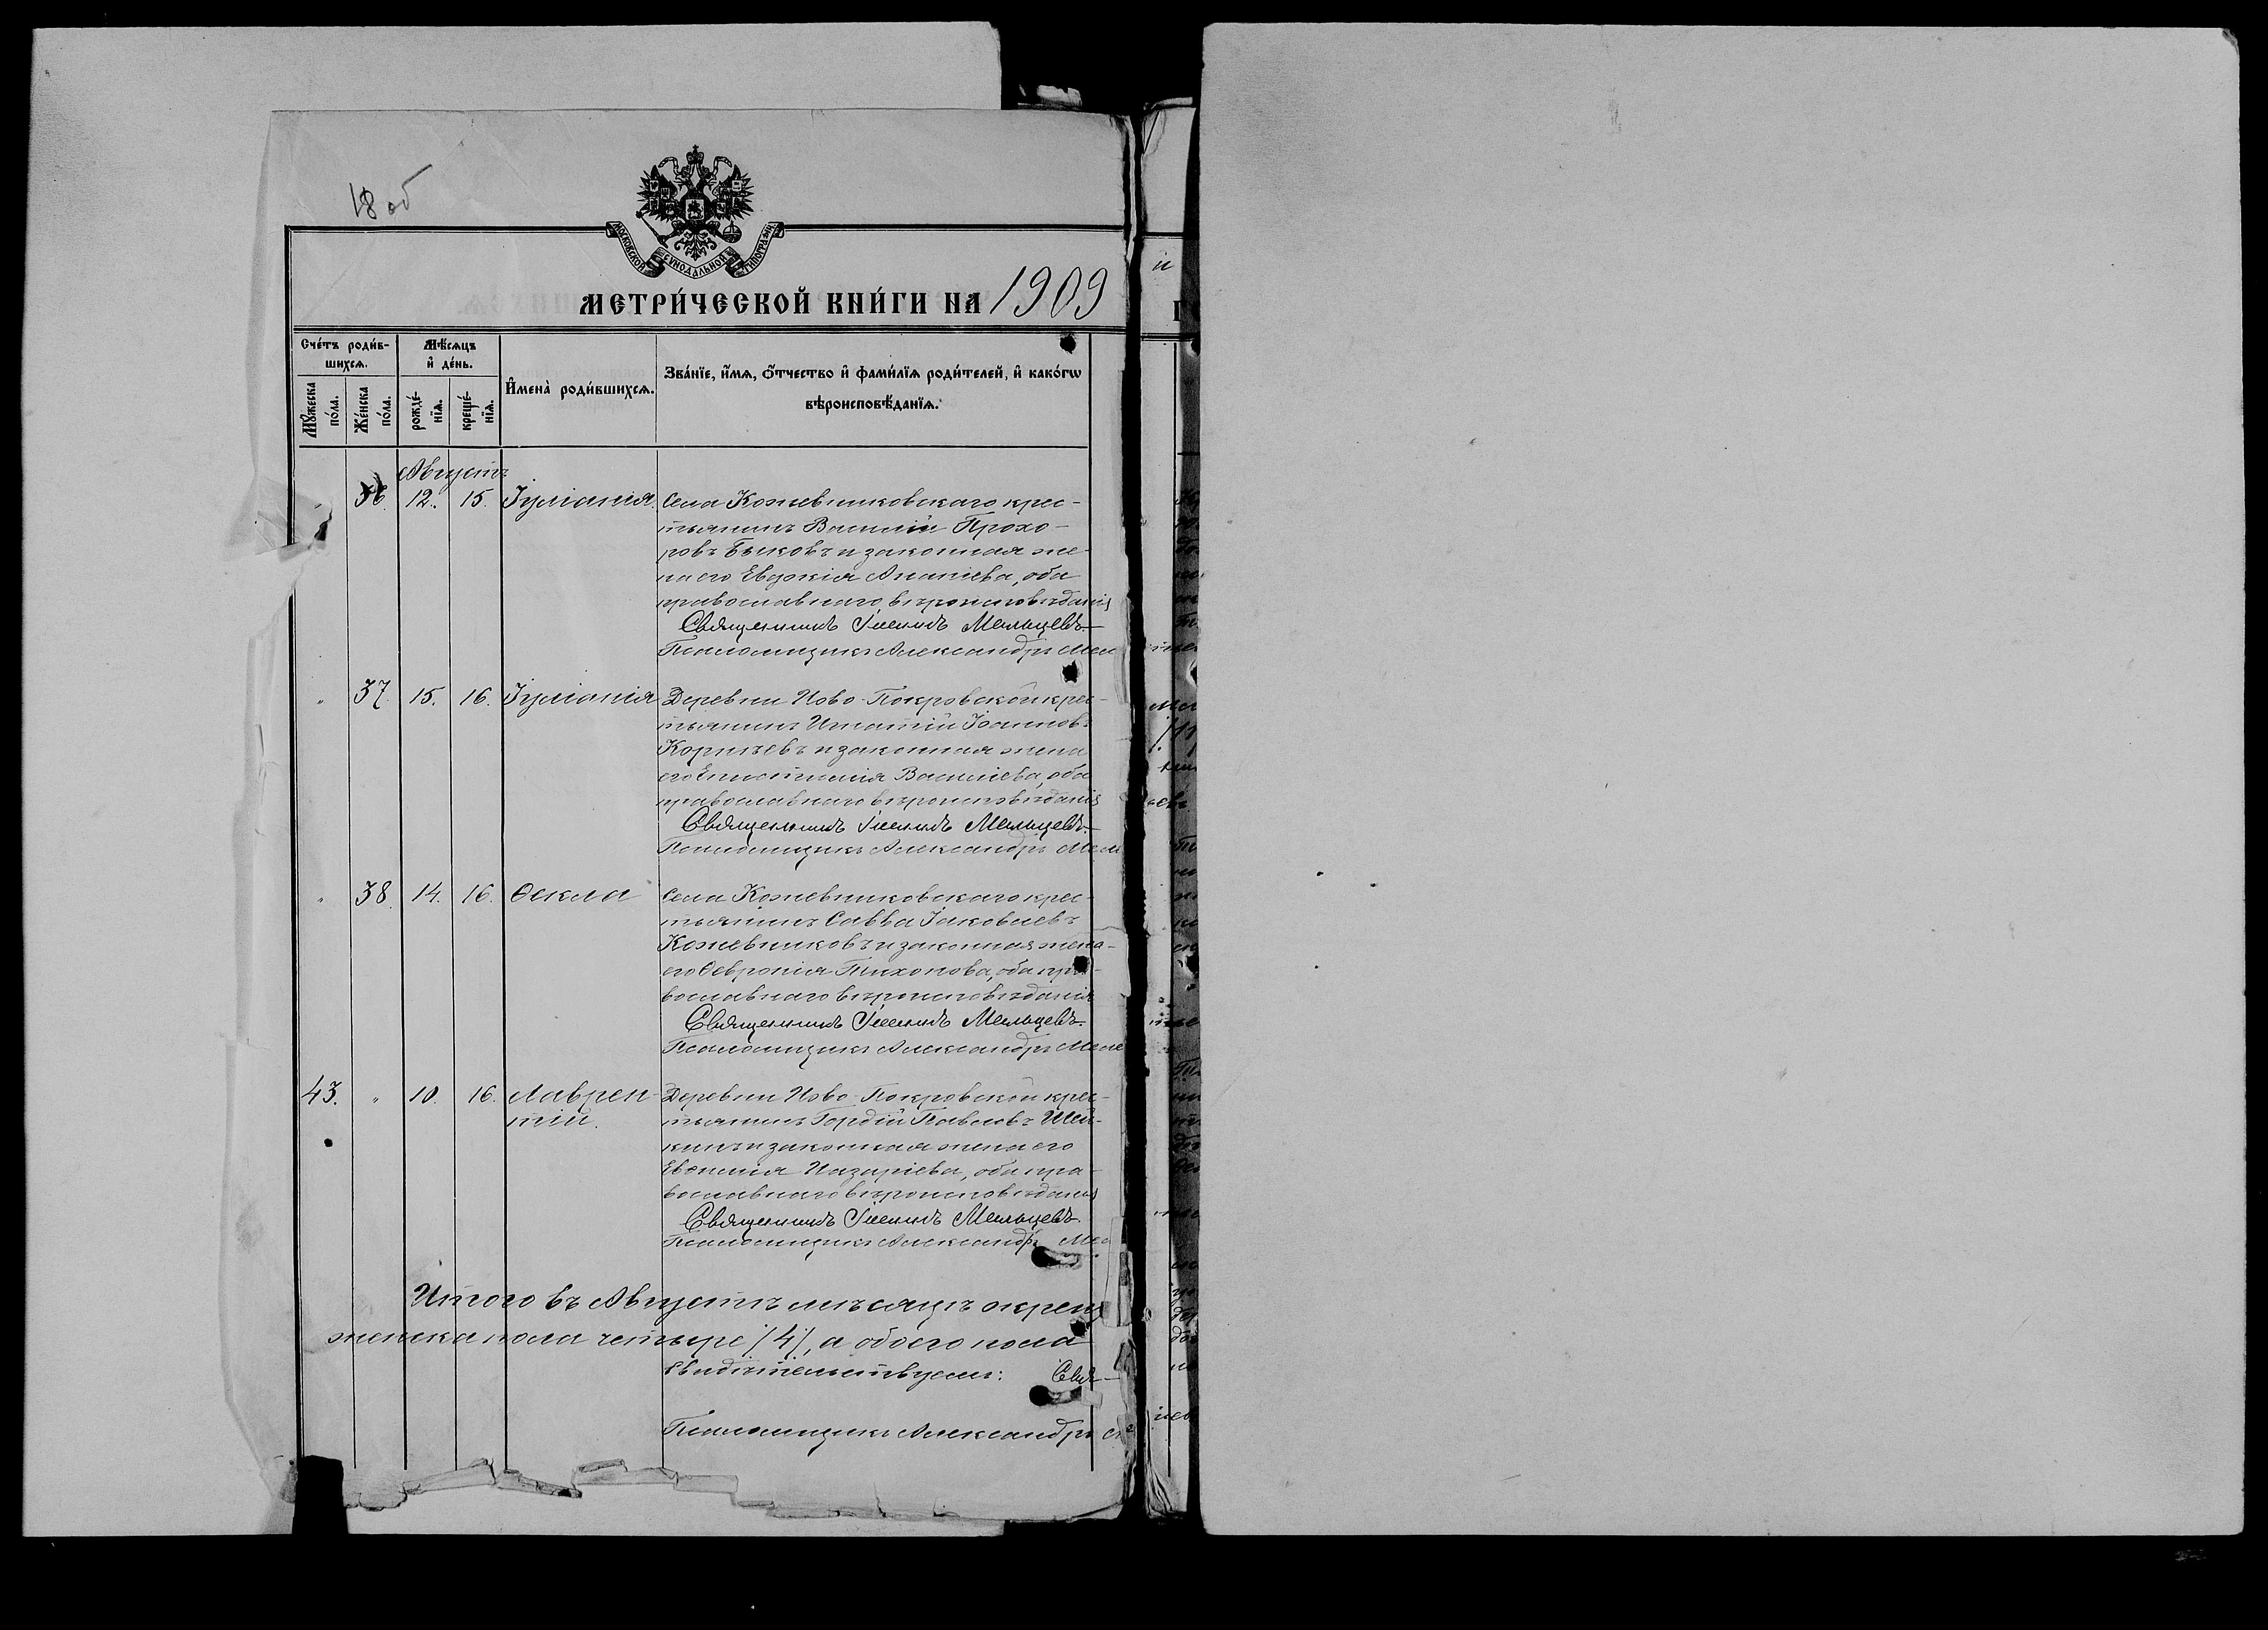 18 об
МОСКОВСКОЙ СѴНОДАЛЬНОЙ ТИПОГРАФІИ
МЕТРИ́ЧЕСКОЙ КНИ́ГИ НА 1909
Сче́тъ роди́в-
шихсѧ.
Мѣ́сѧцъ
и҆ де́нь.
И҆мена̀ роди́вшихсѧ.
Зва́нїе, и҆́мѧ, ѻ҆́тчество и҆ фами́лїѧ роди́телей, и҆ како́гѡ
вѣроисповѣ́данїѧ.
Мꙋ́жеска
по́ла.
Же́нска
по́ла.
рожде́-
нїѧ.
креще́-
нїѧ.
Августъ
36. 12. 15. Іуліанія. Села Кожевниковскаго крес-
тьянинъ Василій Прохо-
ровъ Быковъ и законная же-
на его Евдокія Ананіева, оба
православнаго вѣроисповѣданія
Священникъ Мельцевъ
Псаломщикъ Александръ Мел
" 37. 15. 16. Іуліанія Деревни Ново-Покровской крес-
тьянинъ Игнатій Іоанновъ
Корнѣевъ и законная жена
его Епистимія Василіева, оба
православнаго вѣроисповѣданія
Священникъ Мельцевъ
Псаломщикъ Александръ Мел
" 38. 14. 16. Ѳекла Села Кожевниковскаго крес-
тьянинъ Савва Іаковлевъ
Кожевниковъ и законная жена
его Ѳевронія Тихонова, оба пра-
вославнаго вѣроисповѣданія
Священникъ Мельцевъ
Псаломщикъ Александръ Меле
43. " 10. 16. Лаврен- Деревни Ново-Покровской крес-
тій. тьянинъ Гордій Павловъ Шей-
кинъ и законная жена его
Евѳимія Назаріева, оба пра-
вославнаго вѣроисповѣданія
Священникъ Мельцевъ
Псаломщикъ Александръ Мел
Итого въ Августѣ мѣсяцѣ окрещ
женска пола четыре /4/, а обоего пола
Свидѣтельствуемъ: Свя-
Псаломщикъ Александръ